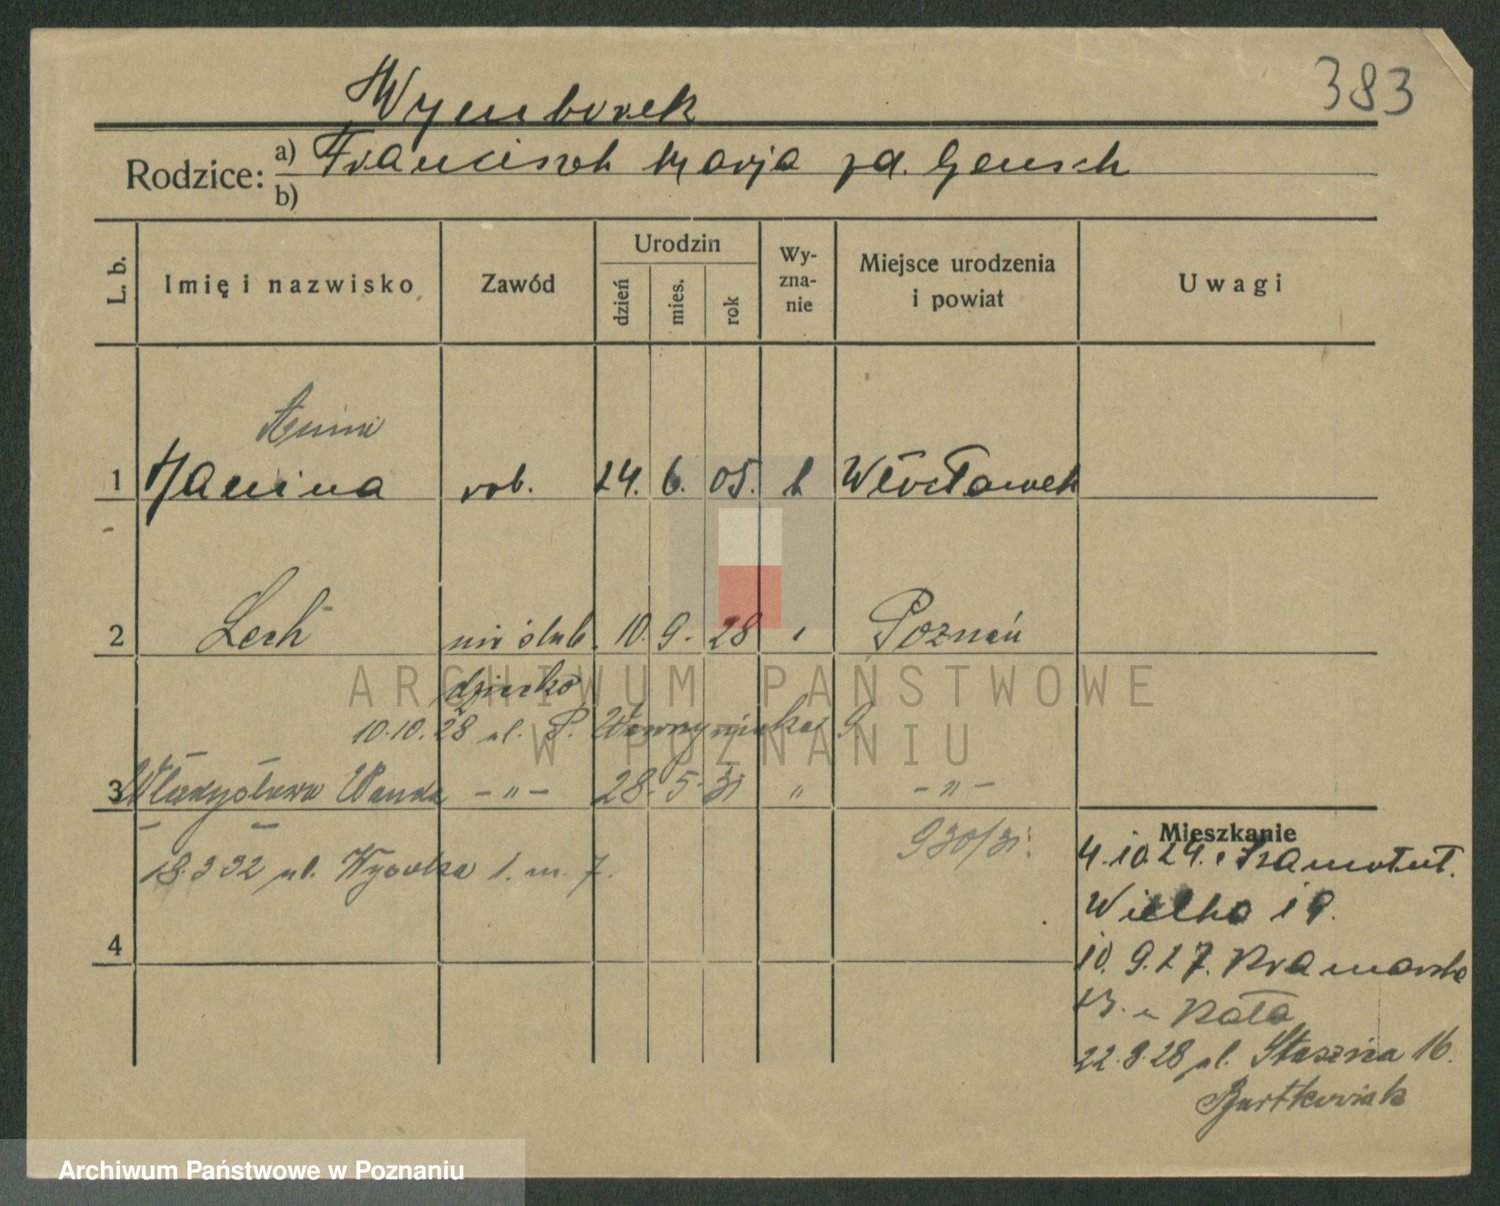 383
Wymborek
Rodzice: a) Franciszek Marja zd. Gensch
b)
L. b. Imię i nazwisko Zawód Urodzin dzień mies. rok Wyznanie Miejsce urodzenia i powiat Uwagi
1 Janina rob. 24. 6. 05. k Włocławek
2 Lech nieślub. 10. 9. 28 " Poznań
dziecko
10.10.28 ul. P. Wawrzyniaka 9
3 Władysława Wanda - " - 28. 5. 31 " - " -
930/31.
18.3 32 ul. Wysoka 1. m. 7.
4
Mieszkanie
4.10.24. z Szamotuł.
Wielka 19.
10. 9. 27. Kramarska
u Kota
22.9.28 ul. Staszica 16.
Bartkowiak
ARCHIWUM PAŃSTWOWE
W POZNANIU
Archiwum Państwowe w Poznaniu